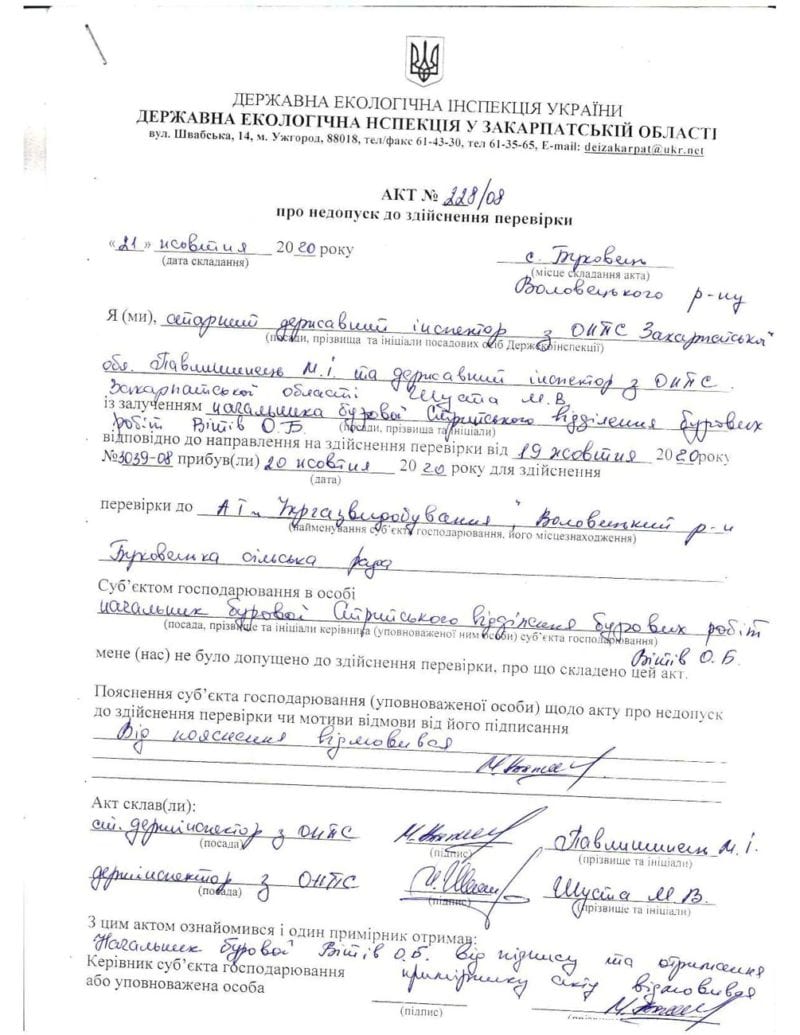 ДЕРЖАВНА ЕКОЛОГІЧНА ІНСПЕКЦІЯ УКРАЇНИ
ДЕРЖАВНА ЕКОЛОГІЧНА НСПЕКЦІЯ У ЗАКАРПАТСЬКІЙ ОБЛАСТІ
вул. Швабська, 14, м. Ужгород, 88018, тел/факс 61-43-30, тел 61-35-65, E-mail: deizakarpat@ukr.net
АКТ № 228/08
про недопуск до здійснення перевірки
«21» жовтня 2020 року
(дата складання)
с. Буковець
(місце складання акта)
Воловецького р-ну
Я (ми), старший державний інспектор з ОНПС Закарпатської
(посади, прізвища та ініціали посадових осіб Держекоінспекції)
обл. Павлишинець М.І. та державний інспектор з ОНПС
Закарпатської області Шуста М.В.
із залученням начальника бурової Стрийського відділення бурових
робіт Вітів О.Б. (посади, прізвища та ініціали)
відповідно до направлення на здійснення перевірки від 19 жовтня 2020 року
№3039-08 прибув(ли) 20 жовтня 2020 року для здійснення
(дата)
перевірки до АТ „Укргазвидобування", Воловецький р-н
(найменування суб'єкта господарювання, його місцезнаходження)
Буковецька сільська рада
Суб'єктом господарювання в особі
начальник бурової Стрийського відділення бурових робіт
(посада, прізвище та ініціали керівника (уповноваженої ним особи) суб'єкта господарювання)
Вітів О.Б.
мене (нас) не було допущено до здійснення перевірки, про що складено цей акт.
Пояснення суб'єкта господарювання (уповноваженої особи) щодо акту про недопуск
до здійснення перевірки чи мотиви відмови від його підписання
Від пояснення відмовився
Акт склав(ли):
ст. держінспектор з ОНПС Павлишинець М.І.
(посада) (підпис) (прізвище та ініціали)
держінспектор з ОНПС Шуста М.В.
(посада) (підпис) (прізвище та ініціали)
З цим актом ознайомився і один примірник отримав:
Начальник бурової Вітів О.Б. від підпису та отримання
Керівник суб'єкта господарювання примірнику акту відмовився
або уповноважена особа
(підпис)